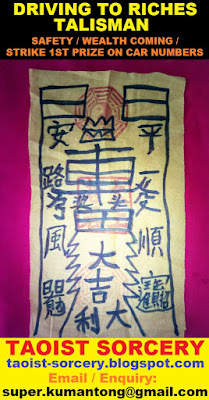 DRIVING TO RICHES
TALISMAN
SAFETY / WEALTH COMING /
STRIKE 1ST PRIZE ON CAR NUMBERS
平
順
安
路
風
大
吉
大
利
TAOIST SORCERY
taoist-sorcery.blogspot.com
Email / Enquiry:
super.kumantong@gmail.com